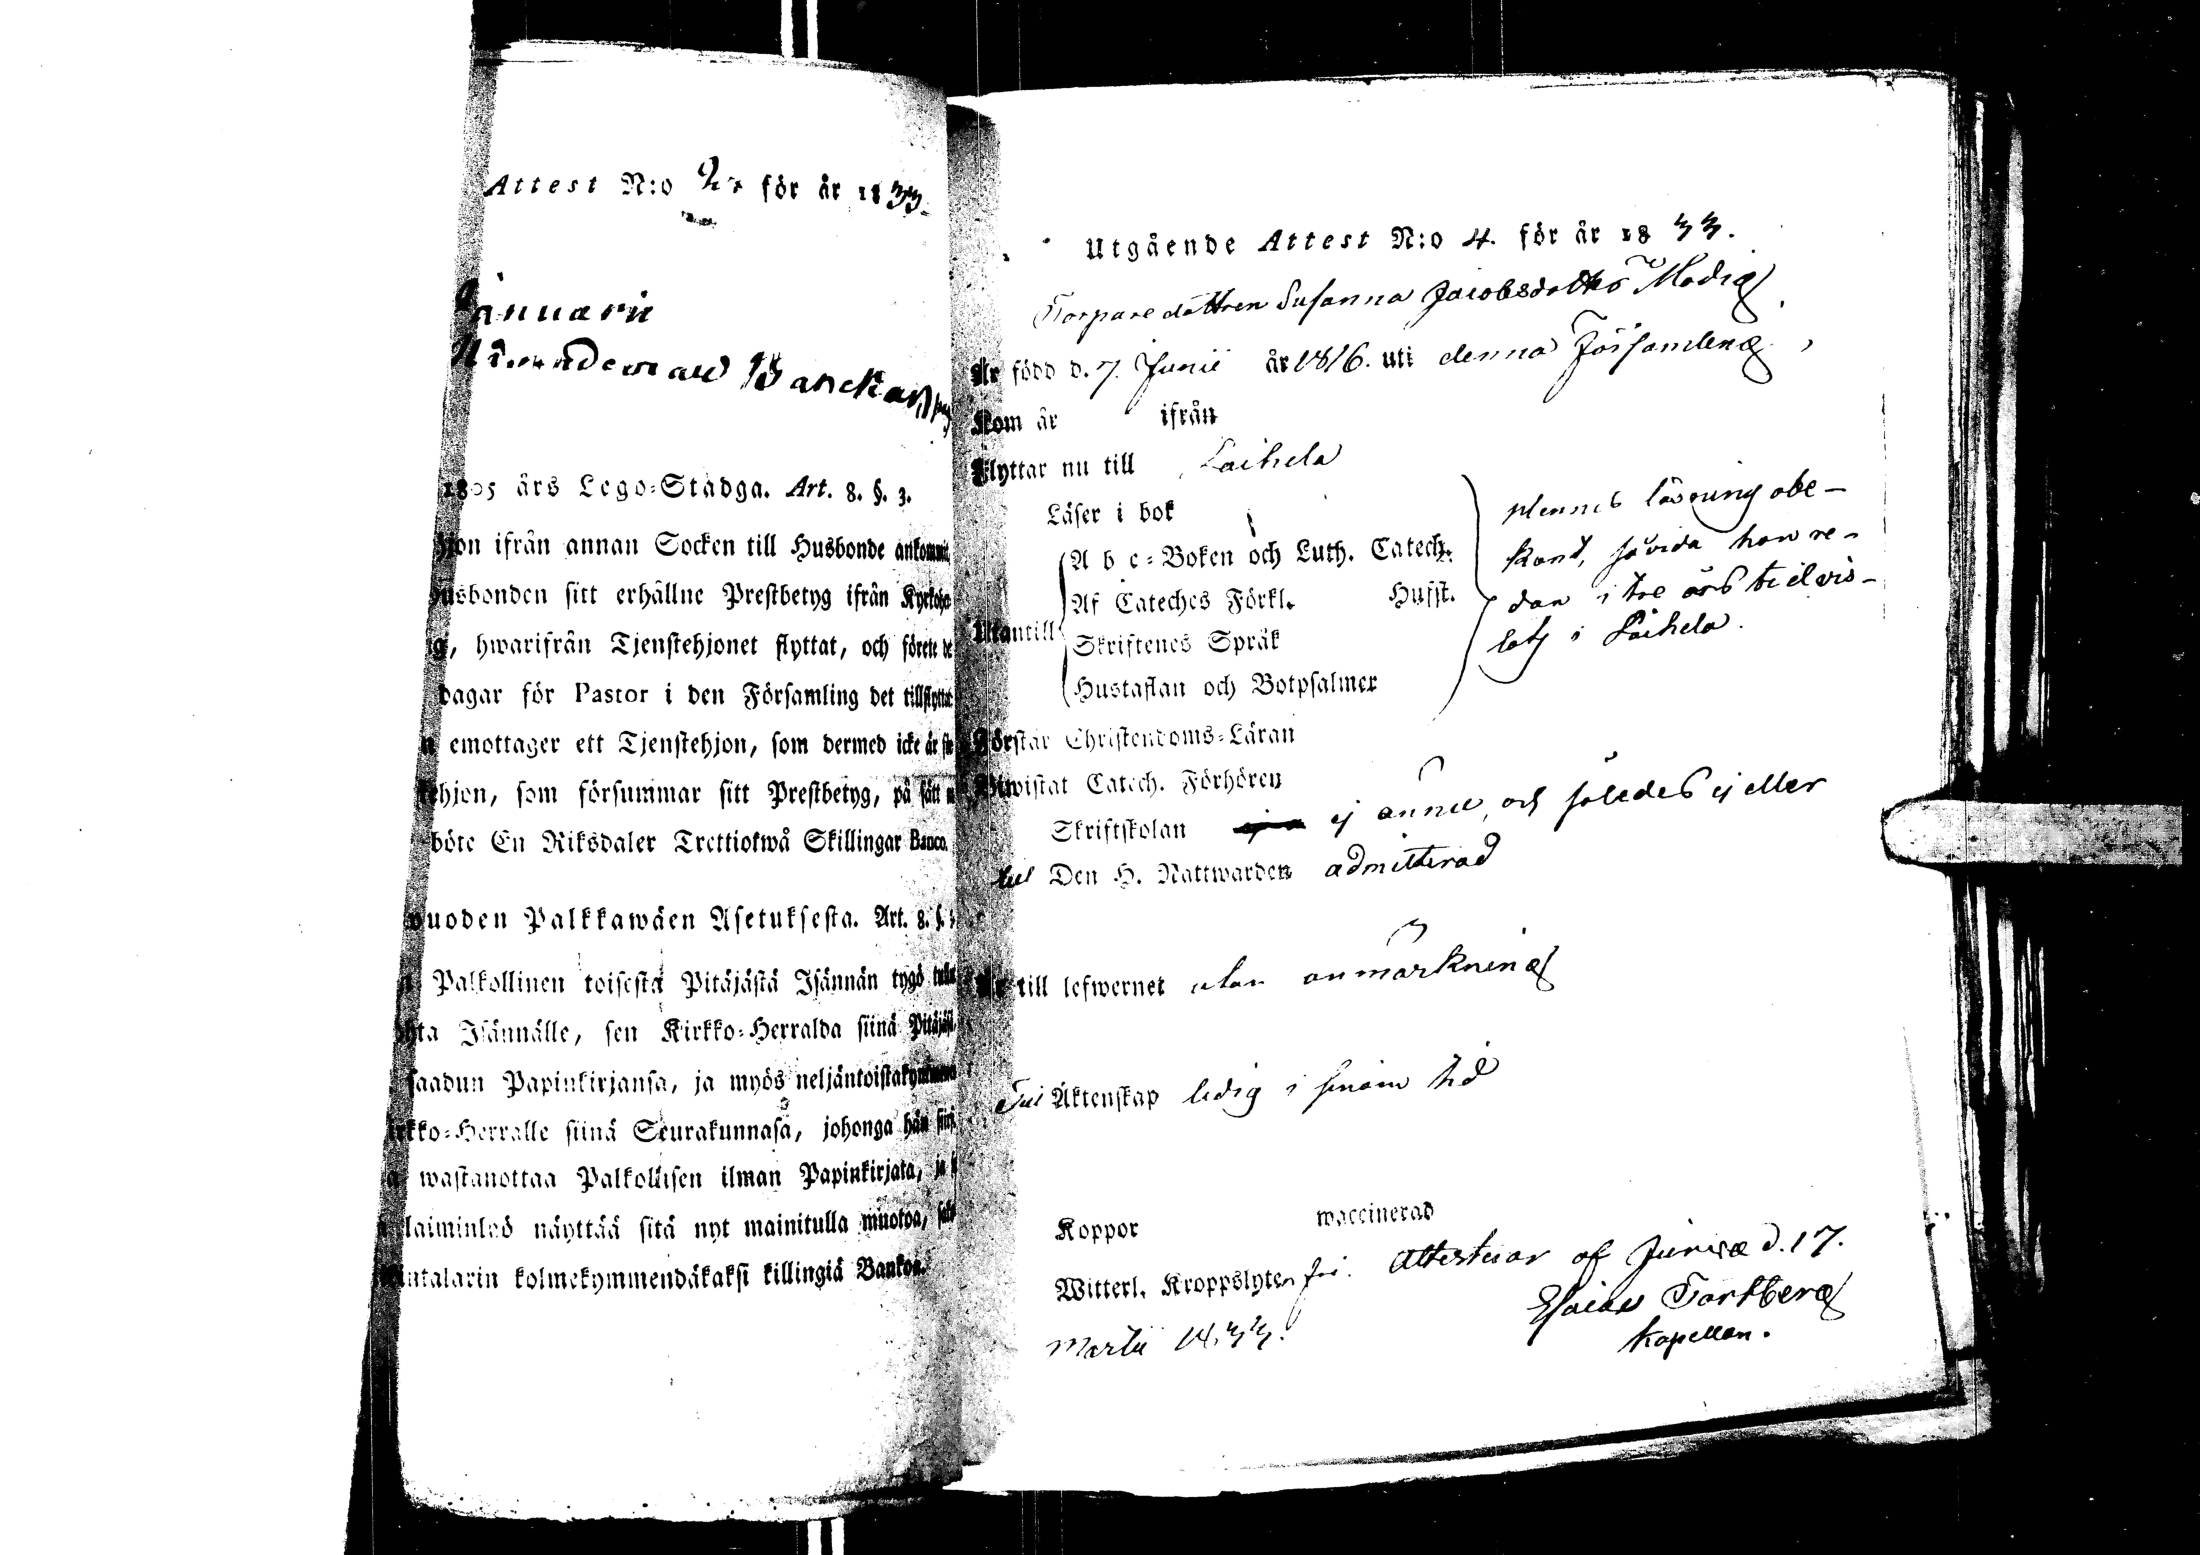 Attest N:o 2. för år 1833.
Januarii
1805 års Lego-Stadga. Art. 8. §. 3.
hjon ifrån annan Socken till Husbonde ankommit
husbonden sitt erhållne Prestbetyg ifrån Kyrkohe
ig, hwarifrån Tjenstehjonet flyttat, och förete de
dagar för Pastor i den Församling det tillflyttat
n emottager ett Tjenstehjon, som dermed icke är
ehjon, som försummar sitt Prestbetyg, på sätt
böte En Riksdaler Trettiotwå Skillingar Banco.
wuoden Palkkawäen Asetuksesta. Art. 8. §. 3
Palkollinen toisesta Pitäjästä Isännän tygö
ohta Isännälle, sen Kirkko-Herralda siinä Pitäjäs
saadun Papinkirjansa, ja myös neljäntoistakymmen
irkko-Herralle siinä Seurakunnasa, johonga hän
wastanottaa Palkollisen ilman Papinkirjata, ja
laiminlyö näyttää sitä nyt mainitulla muotoa,
intalarin kolmekymmendäkaksi killingiä Bankoa.
Utgående Attest N:o 4. för år 1833.
Torpare dottren Susanna Jacobsdotter Modig
Är född d. 7. Junii år 1816. uti denna Församling,
Kom år ifrån
Flyttar nu till Laihela
Läser i bok
A b c-Boken och Luth. Catech.
Af Cateches Förkl. Husst.
Utantill
Skriftenes Språk
Hustaflan och Botpsalmer
hennes läsning obe-
kant, såvida hon re-
dan i tre års tid vis-
tats i Laihela.
Förstår Christendoms-Läran
Biwistat Catech. Förhören
Skriftskolan ej ännu, och således ej eller
till Den H. Nattwarden admitterad
Är till lefwernet utan anmärkning
Till Äktenskap ledig i senom tid
Koppor waccinerad
Witterl. Kroppslyten fri. Attesterar af Jurwa d. 17.
Martii 1833.
Esaias Fortberg
Kapellan.